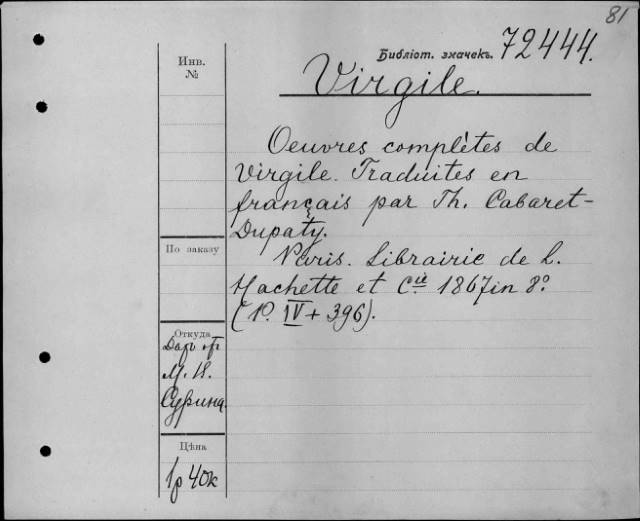 81
Библіот. значекъ. 72444.
Инв.
№
Virgile.
Oeuvres complètes de
Virgile. Traduites en
français par Th. Cabaret-
Dupaty.
По заказу
Paris. Librairie de L.
Hachette et Cie 1867 in 8°
(P. IV + 396).
Откуда
Даръ от
М. И.
Сурина.
Цѣна
1р 40к